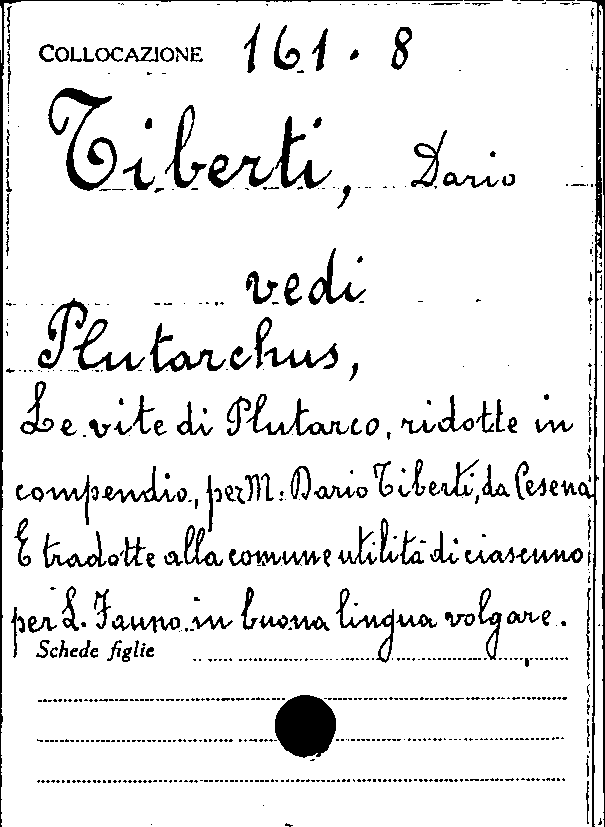 COLLOCAZIONE 161 . 8
Tiberti, Dario
vedi
Plutarchus,
Le vite di Plutarco, ridotte in
compendio, per M. Dario Tiberti, da Cesena
E tradotte alla comune utilità di ciascuno
per L. Fauno in buona lingua volgare.
Schede figlie